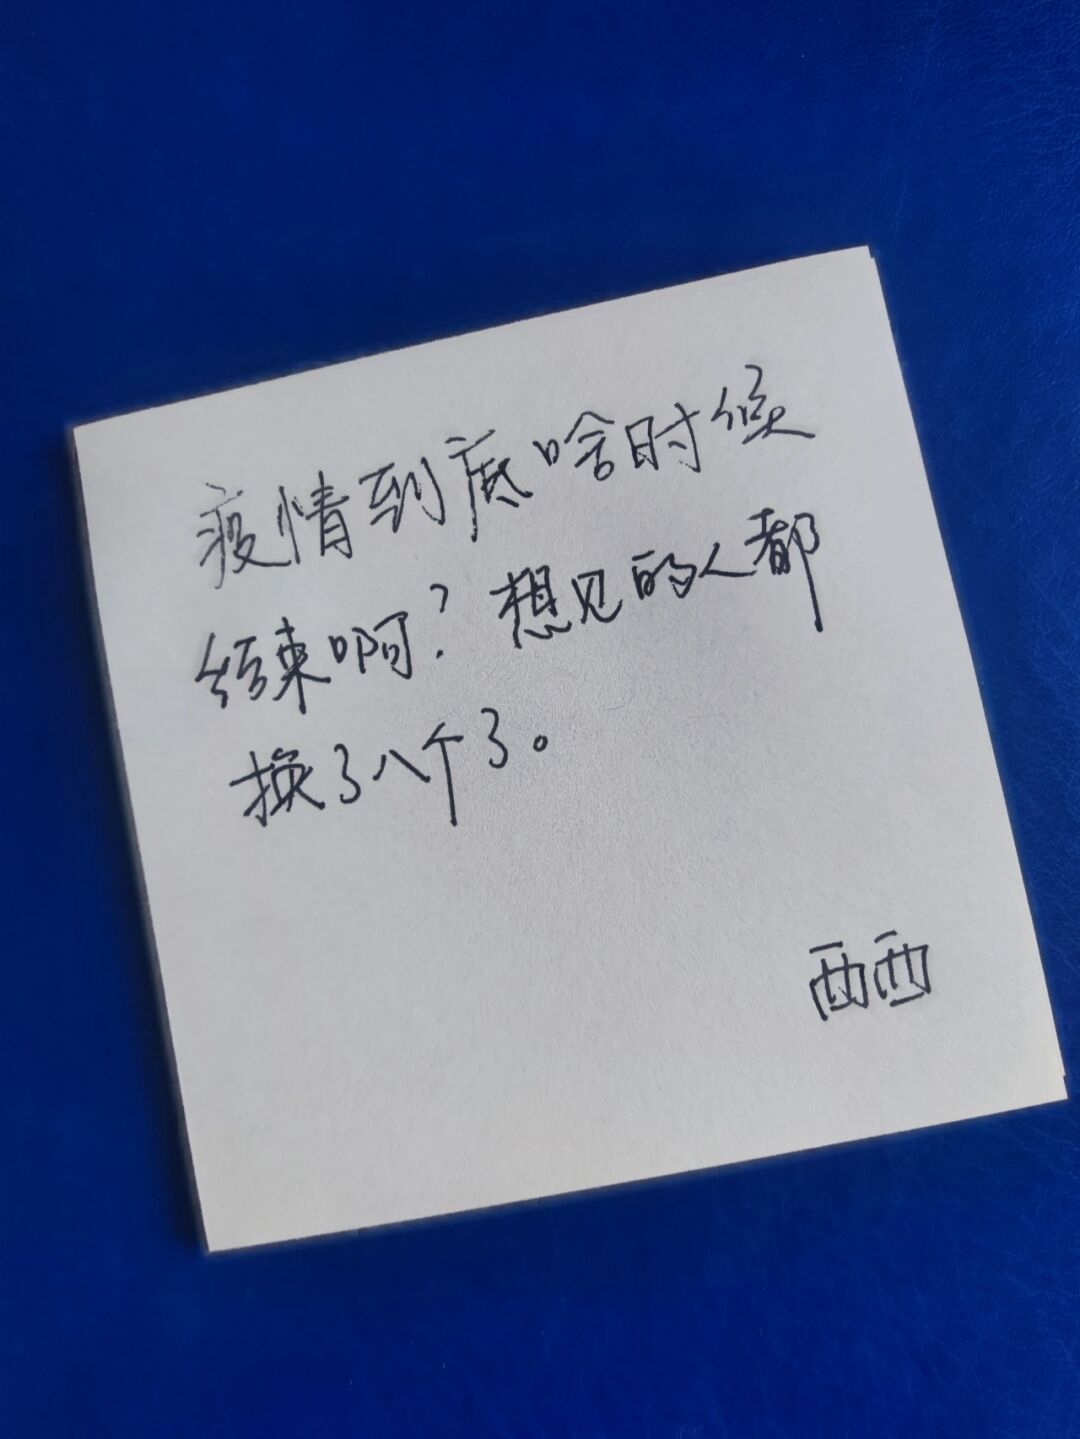 疫情到底啥时候
结束啊？想见的人都
换了八个了。
西西